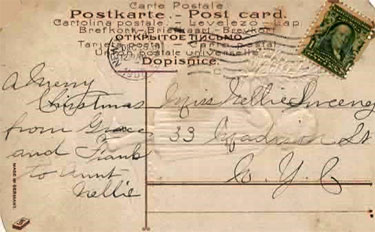 Carte Postale
Postkarte. - Post card.
Cartolina postale - Levelező-Lap
Brefkort - Briefkaart - Brevkort
ОТКРЫТОЕ ПИСЬМО
Tarjeta postal
Union postale universelle
Dopisnice.
A Merry
Christmas
from Grace
and Frank
to Aunt
Nellie
Miss Nellie Sweeney
33 Madison St
N.Y.C
MADE IN GERMANY